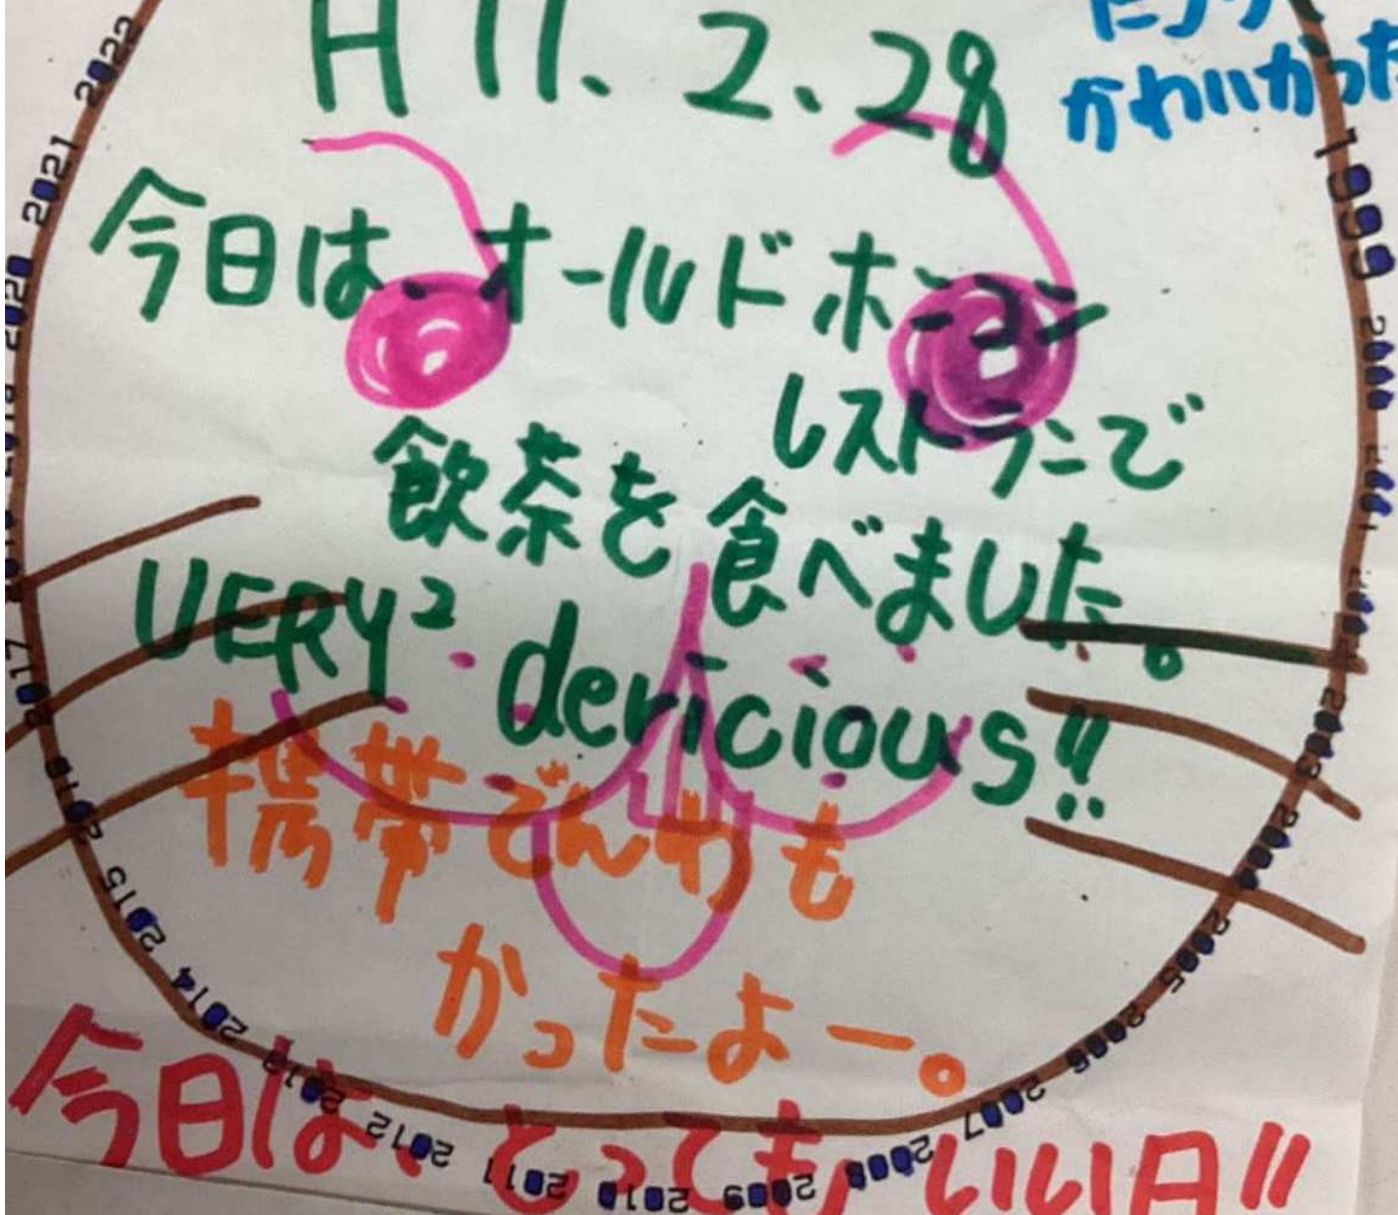 H11.2.28
かわいかった
今日は、オールドホンコン
レストランで
飲茶を食べました。
VERY² dericious!!
携帯でんわも
かったよー。
今日は、とってもいい日!!
1999
2000
2001
2002
2003
2004
2005
2006
2007
2008
2009
2010
2011
2012
2013
2014
2015
2016
2017
2018
2020
2021
2022